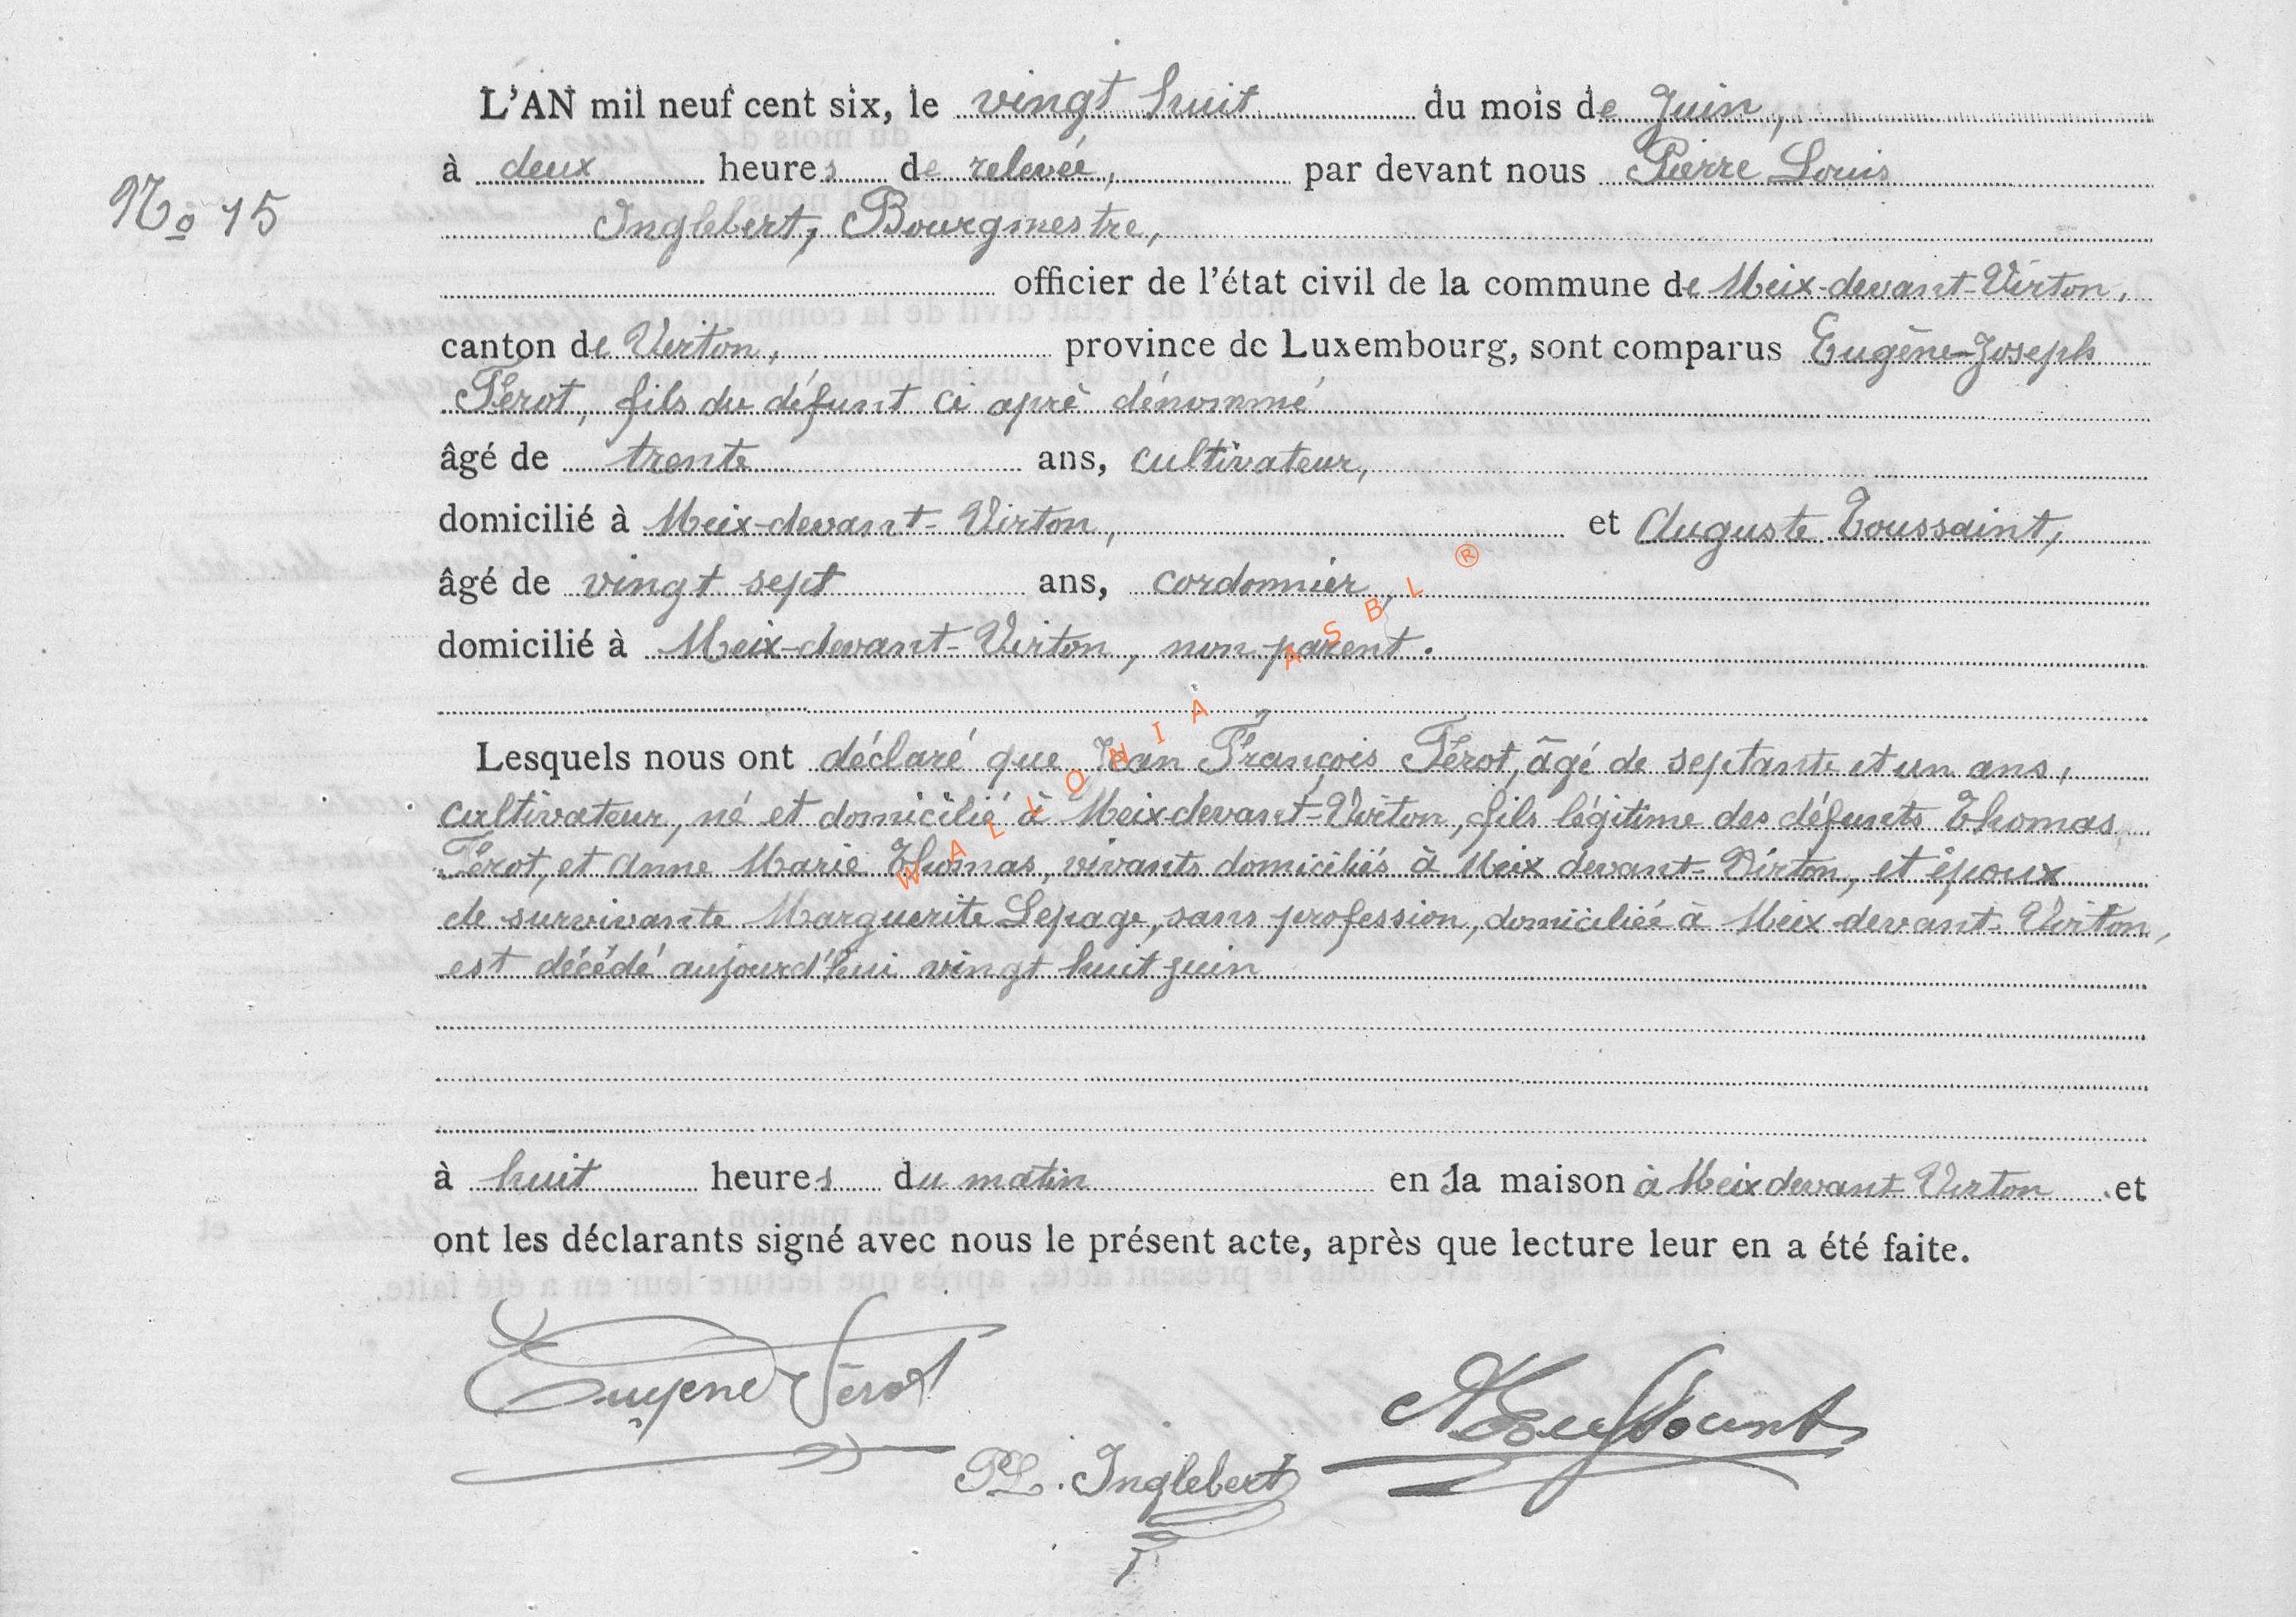 L'AN mil neuf cent six, le vingt huit du mois de Juin,
à deux heures de relevée, par devant nous Pierre Louis
No 15
Inglebert, Bourgmestre,
officier de l'état civil de la commune de Meix-devant-Virton,
canton de Virton, province de Luxembourg, sont comparus Eugène-Joseph
Férot, fils du défunt ci aprè dénommé
âgé de trente ans, cultivateur,
domicilié à Meix-devant-Virton, et Auguste Toussaint,
âgé de vingt sept ans, cordonnier,
domicilié à Meix-devant-Virton, non parent.
Lesquels nous ont déclaré que Jean François Férot, âgé de septante et un ans,
cultivateur, né et domicilié à Meix devant-Virton, fils légitime des défunts Thomas
Férot, et Anne Marie Thomas, vivants domiciliés à Meix devant-Virton, et époux
de survivante Marguerite Lepage, sans profession, domiciliée à Meix-devant-Virton,
est décédé aujourd'hui vingt huit juin
à huit heures du matin en la maison à Meix devant Virton et
ont les déclarants signé avec nous le présent acte, après que lecture leur en a été faite.
Eugene Férot
A Toussaint
PL. Inglebert
WALLONIA ASBL ®